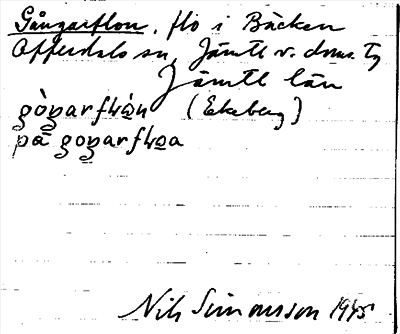 Gångarflon, flo i Bäcken
Offerdals sn, Jämtl v. doms. Tg
Jämtl län
gòŋarfɫo̠n (Ekeberg)
på goŋarfɫo̠a
Nils Simonsson 1945